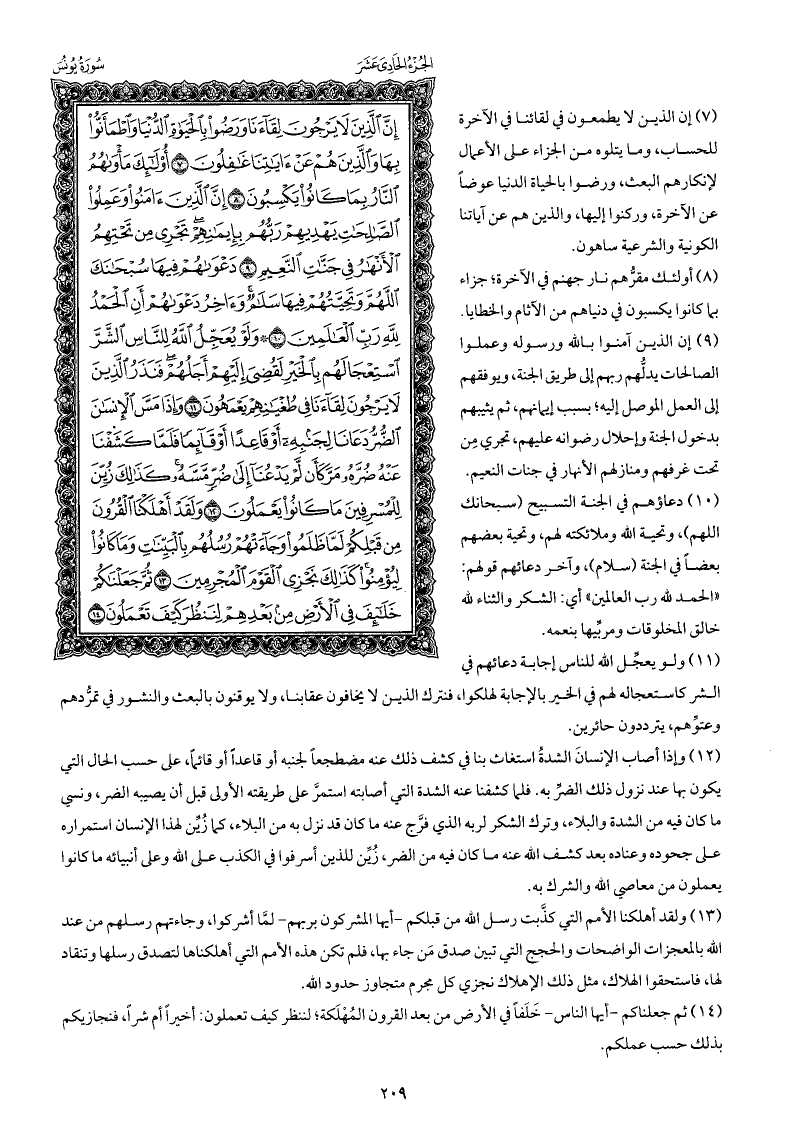 الجزء الحادي عشر
سورة يونس
إِنَّ الَّذِينَ لَا يَرْجُونَ لِقَاءَنَا وَرَضُوا بِالْحَيَاةِ الدُّنْيَا وَاطْمَأَنُّوا
بِهَا وَالَّذِينَ هُمْ عَنْ ءَايَاتِنَا غَافِلُونَ ٧ أُوْلَٰئِكَ مَأْوَاهُمُ
النَّارُ بِمَا كَانُوا يَكْسِبُونَ ٨ إِنَّ الَّذِينَ ءَامَنُوا وَعَمِلُوا
الصَّالِحَاتِ يَهْدِيهِمْ رَبُّهُم بِإِيمَانِهِمْ تَجْرِي مِن تَحْتِهِمُ
الْأَنْهَارُ فِي جَنَّاتِ النَّعِيمِ ٩ دَعْوَاهُمْ فِيهَا سُبْحَانَكَ
اللَّهُمَّ وَتَحِيَّتُهُمْ فِيهَا سَلَامٌ وَءَاخِرُ دَعْوَاهُمْ أَنِ الْحَمْدُ
لِلَّهِ رَبِّ الْعَالَمِينَ ١٠ ۞ وَلَوْ يُعَجِّلُ اللَّهُ لِلنَّاسِ الشَّرَّ
اسْتِعْجَالَهُم بِالْخَيْرِ لَقُضِيَ إِلَيْهِمْ أَجَلُهُمْ فَنَذَرُ الَّذِينَ
لَا يَرْجُونَ لِقَاءَنَا فِي طُغْيَانِهِمْ يَعْمَهُونَ ١١ وَإِذَا مَسَّ الْإِنسَانَ
الضُّرُّ دَعَانَا لِجَنبِهِ أَوْ قَاعِدًا أَوْ قَائِمًا فَلَمَّا كَشَفْنَا
عَنْهُ ضُرَّهُ مَرَّ كَأَن لَّمْ يَدْعُنَا إِلَىٰ ضُرٍّ مَّسَّهُ كَذَٰلِكَ زُيِّنَ
لِلْمُسْرِفِينَ مَا كَانُوا يَعْمَلُونَ ١٢ وَلَقَدْ أَهْلَكْنَا الْقُرُونَ
مِن قَبْلِكُمْ لَمَّا ظَلَمُوا وَجَاءَتْهُمْ رُسُلُهُم بِالْبَيِّنَاتِ وَمَا كَانُوا
لِيُؤْمِنُوا كَذَٰلِكَ نَجْزِي الْقَوْمَ الْمُجْرِمِينَ ١٣ ثُمَّ جَعَلْنَاكُمْ
خَلَائِفَ فِي الْأَرْضِ مِن بَعْدِهِمْ لِنَنظُرَ كَيْفَ تَعْمَلُونَ ١٤
(٧) إن الذين لا يطمعون في لقائنا في الآخرة
للحساب، وما يتلوه من الجزاء على الأعمال
لإنكارهم البعث، ورضوا بالحياة الدنيا عوضاً
عن الآخرة، وركنوا إليها، والذين هم عن آياتنا
الكونية والشرعية ساهون.
(٨) أولئك مقرُّهم نار جهنم في الآخرة؛ جزاء
بما كانوا يكسبون في دنياهم من الآثام والخطايا.
(٩) إن الذين آمنوا بالله ورسوله وعملوا
الصالحات يدلُّهم ربهم إلى طريق الجنة، ويوفقهم
إلى العمل الموصل إليه؛ بسبب إيمانهم، ثم يثيبهم
بدخول الجنة وإحلال رضوانه عليهم، تجري مِن
تحت غرفهم ومنازلهم الأنهار في جنات النعيم.
(١٠) دعاؤهم في الجنة التسبيح (سبحانك
اللهم)، وتحية الله وملائكته لهم، وتحية بعضهم
بعضاً في الجنة (سلام)، وآخر دعائهم قولهم:
«الحمد لله رب العالمين» أي: الشكر والثناء لله
خالق المخلوقات ومربِّيها بنعمه.
(١١) ولو يعجِّل الله للناس إجابة دعائهم في
الشر كاستعجاله لهم في الخير بالإجابة لهلكوا، فنترك الذين لا يخافون عقابنا، ولا يوقنون بالبعث والنشور في تمرُّدهم
وعتوِّهم، يترددون حائرين.
(١٢) وإذا أصاب الإنسانَ الشدةُ استغاث بنا في كشف ذلك عنه مضطجعاً لجنبه أو قاعداً أو قائماً، على حسب الحال التي
يكون بها عند نزول ذلك الضرِّ به. فلما كشفنا عنه الشدة التي أصابته استمرَّ على طريقته الأولى قبل أن يصيبه الضر، ونسي
ما كان فيه من الشدة والبلاء، وترك الشكر لربه الذي فرَّج عنه ما كان قد نزل به من البلاء، كما زُيِّن لهذا الإنسان استمراره
على جحوده وعناده بعد كشف الله عنه ما كان فيه من الضر، زُيِّن للذين أسرفوا في الكذب على الله وعلى أنبيائه ما كانوا
يعملون من معاصي الله والشرك به.
(١٣) ولقد أهلكنا الأمم التي كذَّبت رسل الله من قبلكم -أيها المشركون بربهم- لمَّا أشركوا، وجاءتهم رسلهم من عند
الله بالمعجزات الواضحات والحجج التي تبين صدق مَن جاء بها، فلم تكن هذه الأمم التي أهلكناها لتصدق رسلها وتنقاد
لها، فاستحقوا الهلاك، مثل ذلك الإهلاك نجزي كل مجرم متجاوز حدود الله.
(١٤) ثم جعلناكم -أيها الناس- خَلَفاً في الأرض من بعد القرون المُهْلَكة؛ لننظر كيف تعملون: أخيراً أم شراً، فنجازيكم
بذلك حسب عملكم.
٢٠٩